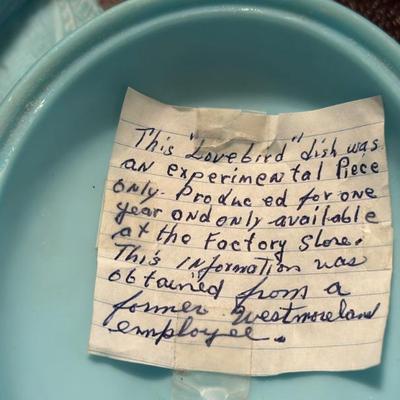 This "Lovebird" dish was
an experimental Piece
only. Produced for one
year and only available
at the Factory Store.
This information was
obtained from a
former Westmoreland
employee.